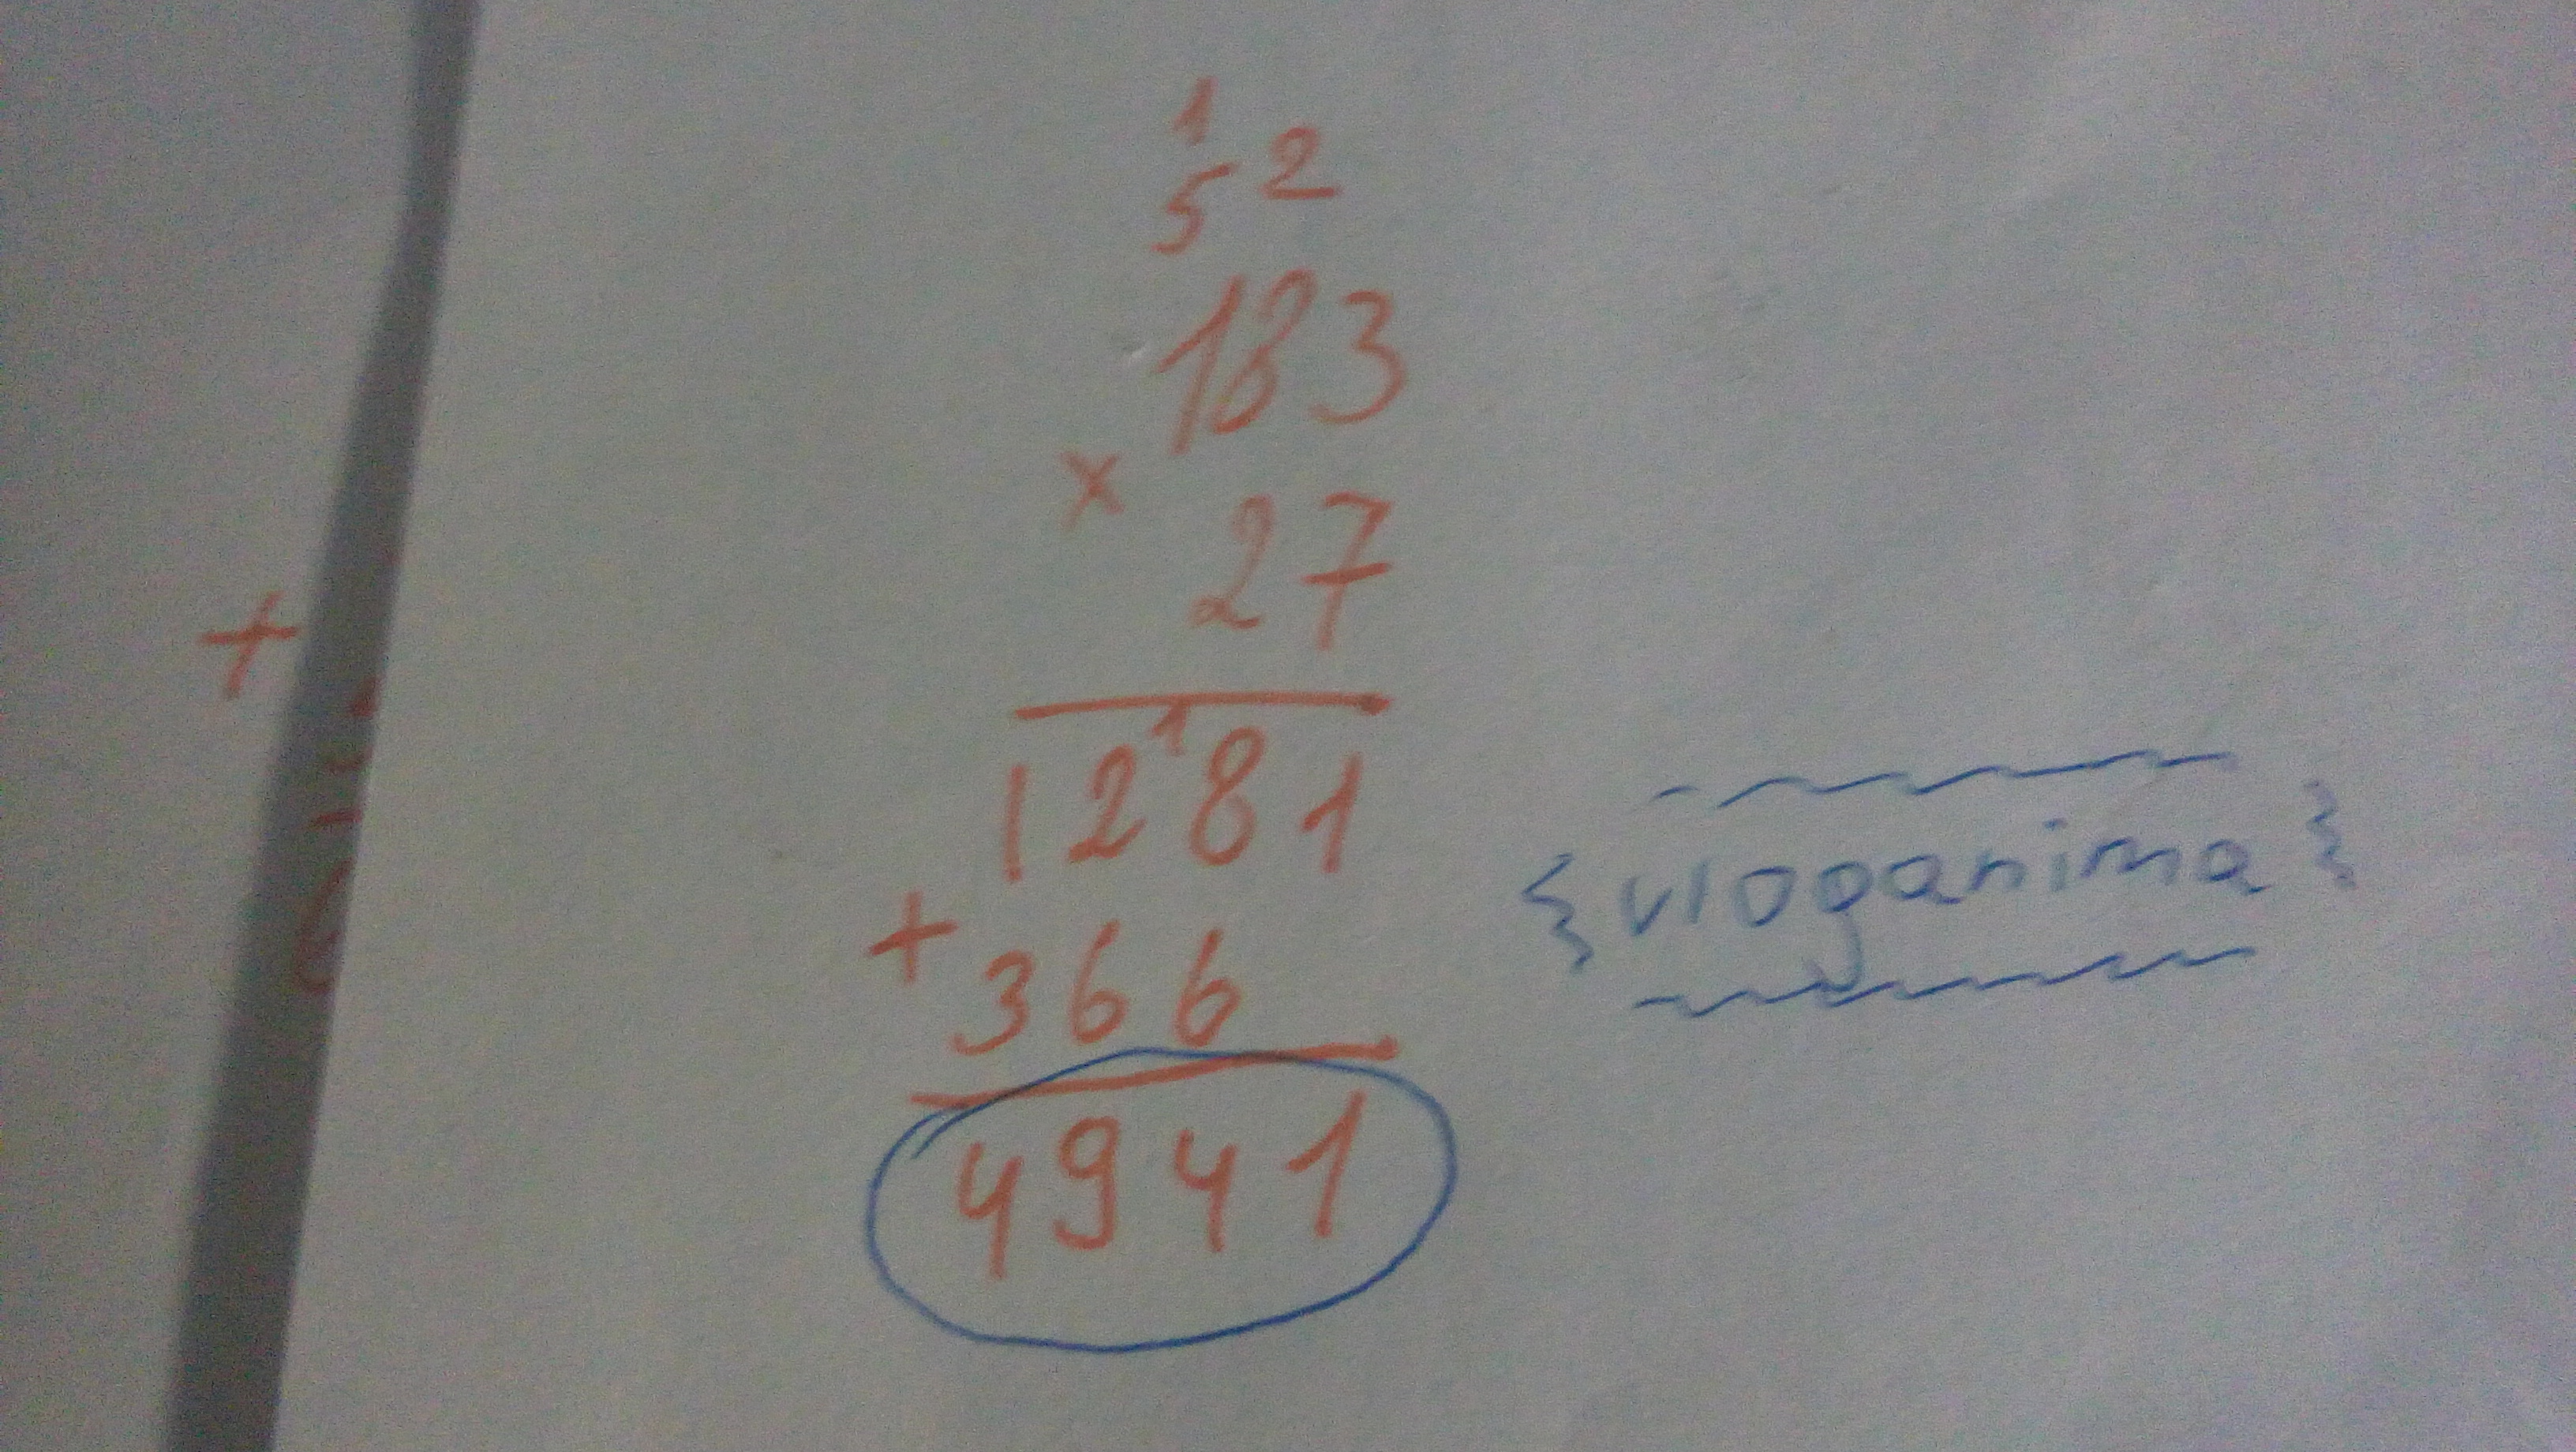 1
5 2
183
x
27
1
1281
+
+ 366
4941
{vloganima}